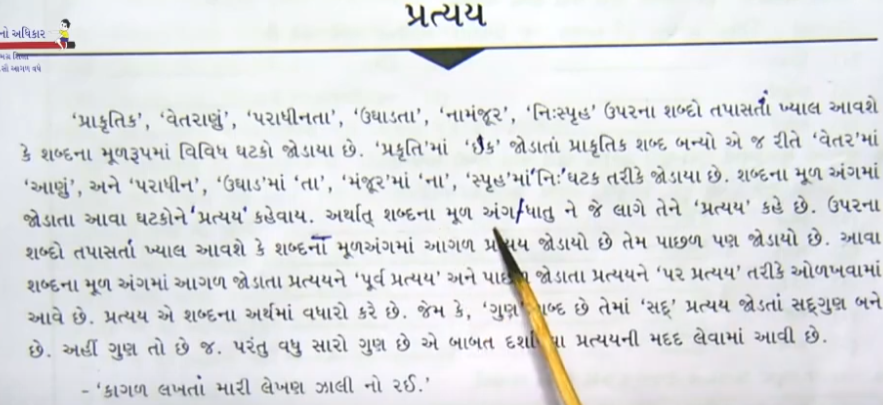 પ્રત્યય
નો અધિકાર
'પ્રાકૃતિક', 'વેતરાણું', 'પરાધીનતા', 'ઉઘાડતા', 'નામંજૂર', 'નિઃસ્પૃહ' ઉપરના શબ્દો તપાસતાં ખ્યાલ આવશે
કે શબ્દના મૂળરૂપમાં વિવિધ ઘટકો જોડાયા છે. 'પ્રકૃતિ'માં 'ઈક' જોડાતાં પ્રાકૃતિક શબ્દ બન્યો એ જ રીતે 'વેતર'માં
'આણું', અને 'પરાધીન', 'ઉઘાડ'માં 'તા', 'મંજૂર'માં 'ના', 'સ્પૃહ'માં 'નિઃ' ઘટક તરીકે જોડાયા છે. શબ્દના મૂળ અંગમાં
જોડાતા આવા ઘટકોને 'પ્રત્યય' કહેવાય. અર્થાત્ શબ્દના મૂળ અંગ/ધાતુ ને જે લાગે તેને 'પ્રત્યય' કહે છે. ઉપરના
શબ્દો તપાસતાં ખ્યાલ આવશે કે શબ્દના મૂળઅંગમાં આગળ પ્રત્યય જોડાયો છે તેમ પાછળ પણ જોડાયો છે. આવા
શબ્દના મૂળ અંગમાં આગળ જોડાતા પ્રત્યયને 'પૂર્વ પ્રત્યય' અને પાછળ જોડાતા પ્રત્યયને 'પર પ્રત્યય' તરીકે ઓળખવામાં
આવે છે. પ્રત્યય એ શબ્દના અર્થમાં વધારો કરે છે. જેમ કે, 'ગુણ' શબ્દ છે તેમાં 'સદ્' પ્રત્યય જોડતાં સદ્ગુણ બને
છે. અહીં ગુણ તો છે જ. પરંતુ વધુ સારો ગુણ છે એ બાબત દર્શાવવા પ્રત્યયની મદદ લેવામાં આવી છે.
- 'કાગળ લખતાં મારી લેખણ ઝાલી નો રઈ.'